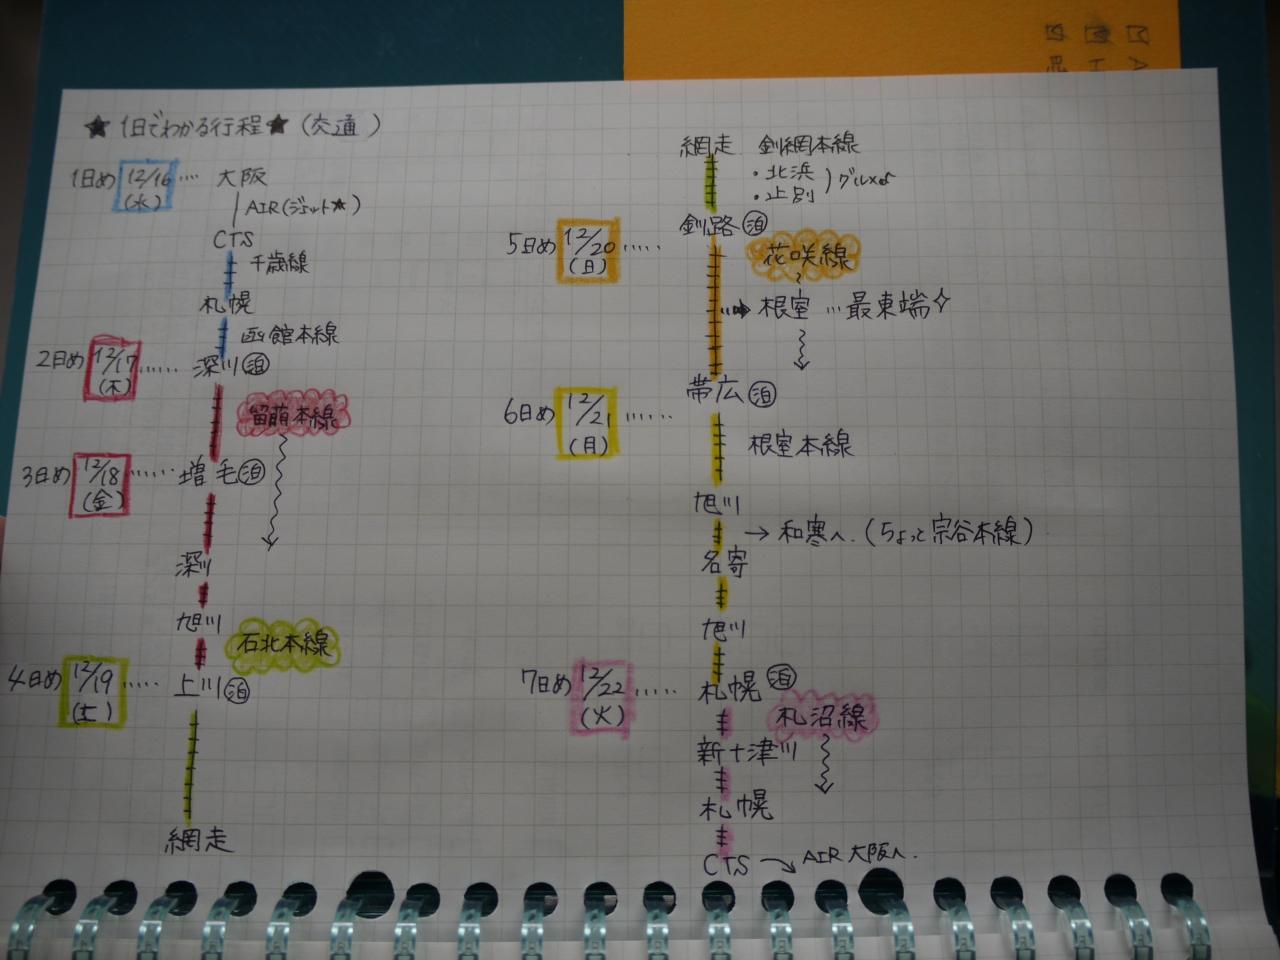 ★1日でわかる行程★(交通)
1日め 12/16(水) ‥‥ 大阪
AIR(ジェット★)
CTS
千歳線
札幌
函館本線
2日め 12/17(木) ‥‥‥ 深川(泊)
留萌本線
3日め 12/18(金) ‥‥‥ 増毛(泊)
深川
旭川
石北本線
4日め 12/19(土) ‥‥‥ 上川(泊)
網走
網走 釧網本線
・北浜
・止別 グルメ
釧路(泊)
5日め 12/20(日) ‥‥‥
花咲線
→ 根室 … 最東端
帯広(泊)
6日め 12/21(月) ‥‥‥
根室本線
旭川
→ 和寒へ.(ちょっと宗谷本線)
名寄
旭川
7日め 12/22(火) ‥‥‥ 札幌(泊)
札沼線
新十津川
札幌
CTS → AIR 大阪へ.